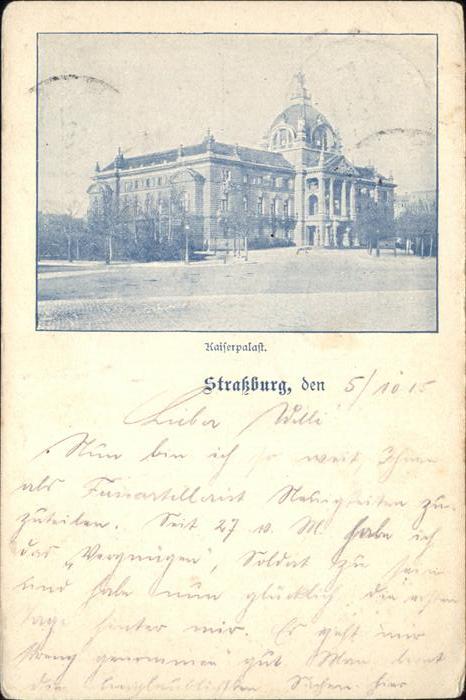 Kaiserpalast.
Straßburg, den 5/10 15
Lieber Willi
Nun bin ich so weit, Ihnen
als Fussartillerist Neuigkeiten zu-
zuteilen. Seit 27 v. M. habe ich
das „Vergnügen“, Soldat zu sein
und habe nun glücklich die ersten
Tage hinter mir. Es geht mir
streng genommen gut Man lernt
die unglaublichsten Sachen hier